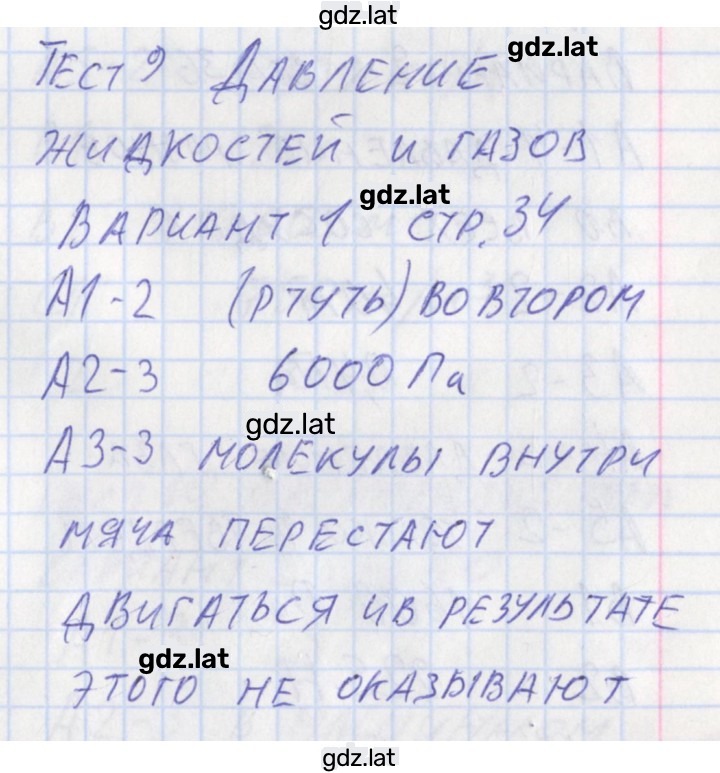 gdz.lat
gdz.lat
ТЕСТ 9 ДАВЛЕНИЕ
ЖИДКОСТЕЙ И ГАЗОВ
gdz.lat
ВАРИАНТ 1 СТР. 34
А1-2 (РТУТЬ) ВО ВТОРОМ
А2-3 6000 Па
gdz.lat
А3-3 МОЛЕКУЛЫ ВНУТРИ
МЯЧА ПЕРЕСТАЮТ
ДВИГАТЬСЯ И В РЕЗУЛЬТАТЕ
gdz.lat
ЭТОГО НЕ ОКАЗЫВАЮТ
gdz.lat